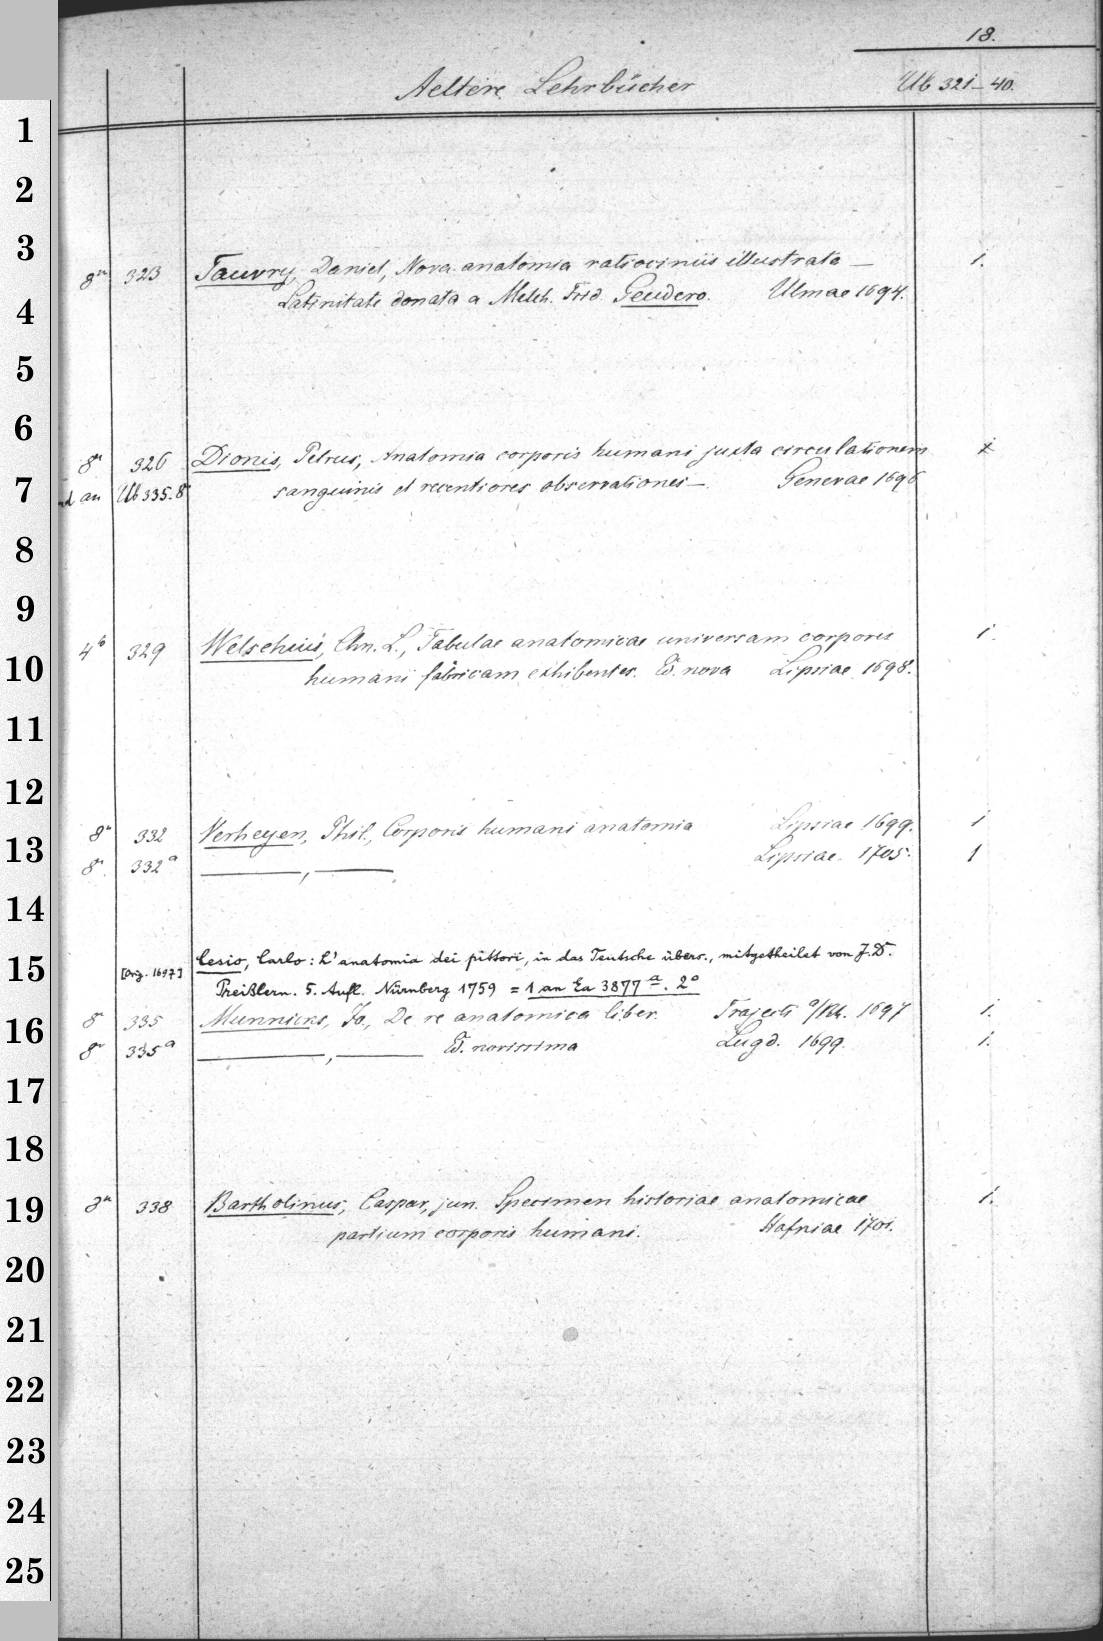 18.
Aeltere Lehrbücher Ub 321-40.
1
2
3
8º 323 Tauvry, Daniel, Nova anatomia ratiociniis illustrata — 1.
Latinitate donata a Melch. Frid. Geudero. Ulmae 1694.
4
5
6
8º 326 Dionis, Petrus, Anatomia corporis humani juxta circulationem
7
an Ub 335. 8º sanguinis et recentiores observationes —. Genevae 1696
8
9
4º 329 Welschius, Chn. L., Tabulae anatomicae universam corporis 1.
10
humani fabricam exhibentes. Ed. nova Lipsiae 1698.
11
12
8º 332 Verheyen, Phil., Corporis humani anatomia Lipsiae 1699. 1
13
8º 332ª ———, ——— Lipsiae 1705. 1
14
Cesio, Carlo: L'anatomia dei pittori, in das Teutsche übers., mitgetheilet von J. D.
15
[Orig. 1697] Preißlern. 5. Aufl. Nürnberg 1759 = 1 an Ea 3877ª. 2º
8º 335 Munnicks, Jo., De re anatomica liber. Trajecti a/Rh. 1697 1.
16
8º 335ª ———, ——— Ed. novissima Lugd. 1699. 1.
17
18
8º 338 Bartholinus, Caspar, jun. Specimen historiae anatomicae 1.
19
partium corporis humani. Hafniae 1701.
20
21
22
23
24
25